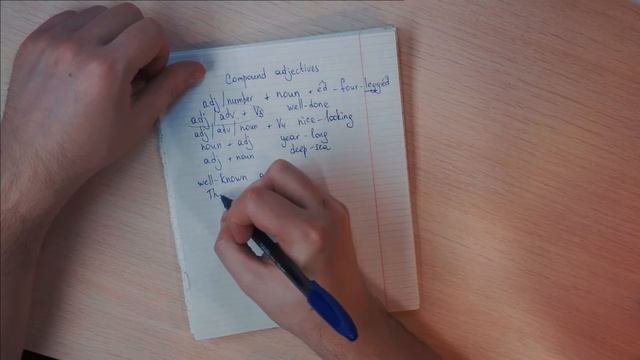 Compound adjectives
adj/number + noun + ed - four-legged
adj/adv + V3 well-done
adj/adv/noun + V4 nice-looking
noun + adj year-long
adj + noun deep-sea
well-known
Th